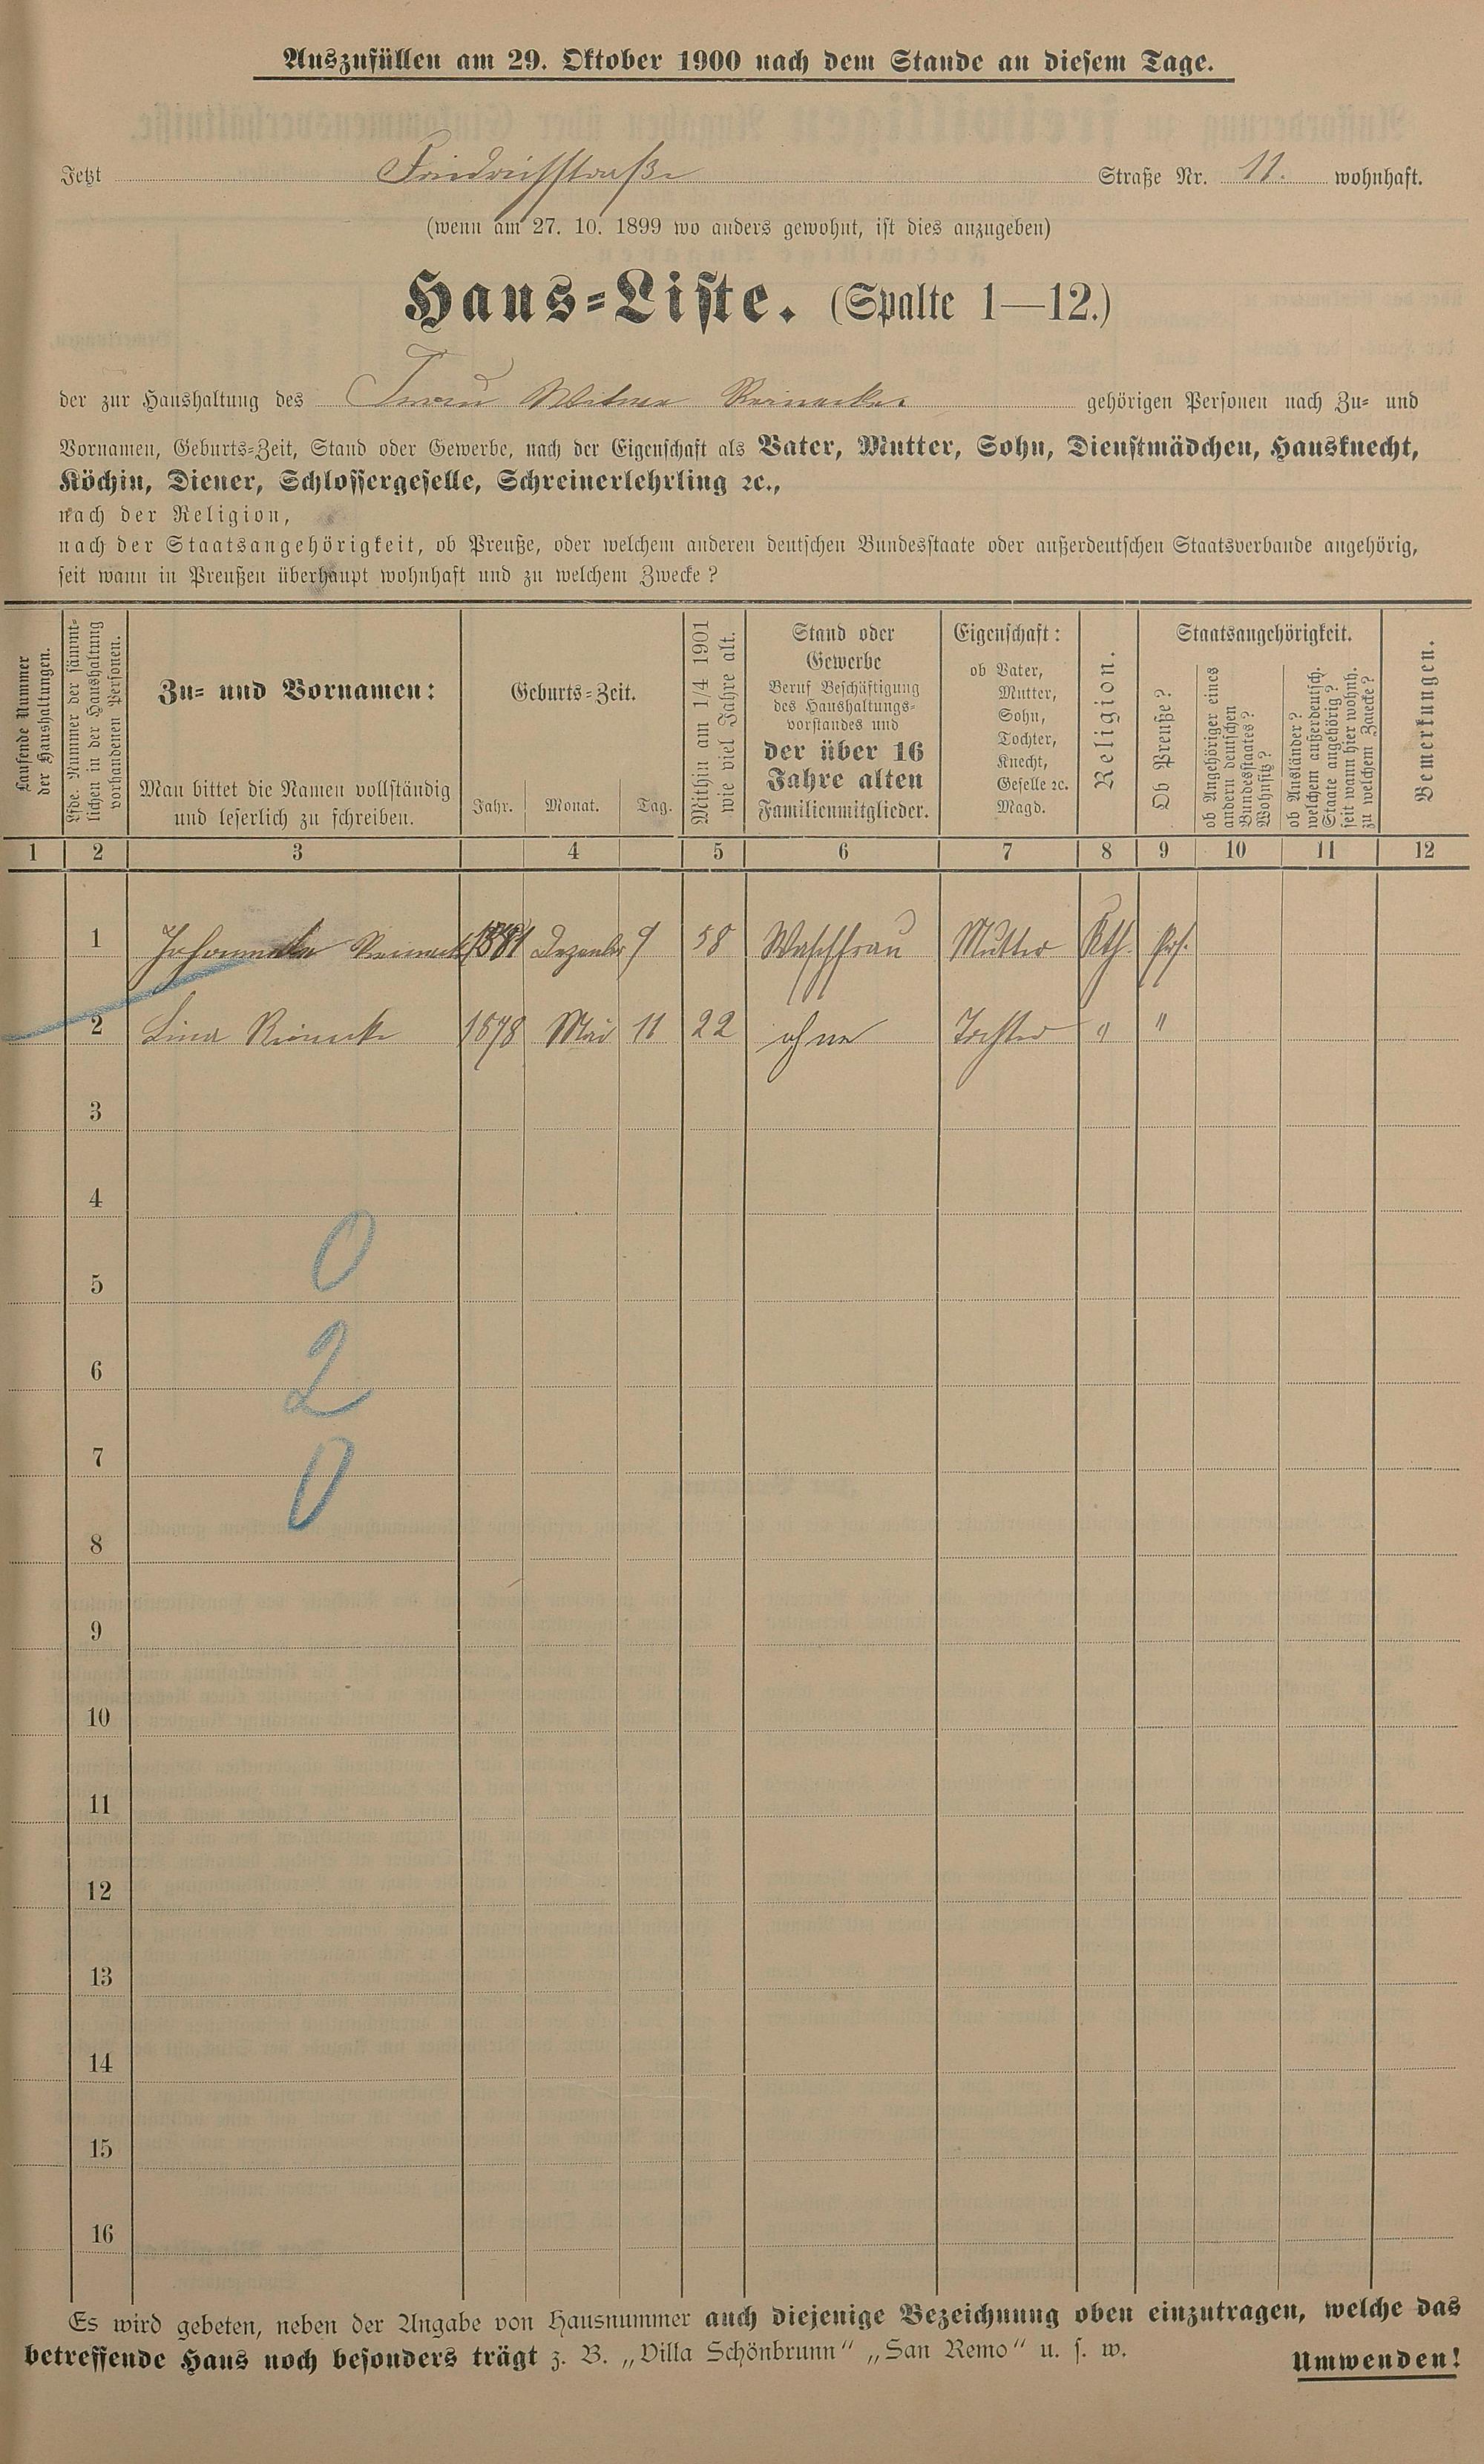 Auszufüllen am 29. Oktober 1900 nach dem Stande an diesem Tage.
Jetzt Friedrichstraße Straße Nr. 11. wohnhaft.
(wenn am 27. 10. 1899 wo anders gewohnt, ist dies anzugeben)
Haus-Liste. (Spalte 1—12.)
der zur Haushaltung des Frau Witwe Reinecke gehörigen Personen nach Zu- und
Vornamen, Geburts-Zeit, Stand oder Gewerbe, nach der Eigenschaft als Vater, Mutter, Sohn, Dienstmädchen, Hausknecht,
Köchin, Diener, Schlossergeselle, Schreinerlehrling ꝛc.,
nach der Religion,
nach der Staatsangehörigkeit, ob Preuße, oder welchem anderen deutschen Bundesstaate oder außerdeutschen Staatsverbande angehörig,
seit wann in Preußen überhaupt wohnhaft und zu welchem Zwecke?
Laufende Nummer
der Haushaltungen.
Lfde. Nummer der sämmt-
lichen in der Haushaltung
vorhandenen Personen.
Zu- und Vornamen:
Man bittet die Namen vollständig
und leserlich zu schreiben.
Geburts-Zeit.
Jahr. Monat. Tag.
Mithin am 1/4 1901
wie viel Jahre alt.
Stand oder
Gewerbe
Beruf Beschäftigung
des Haushaltungs-
vorstandes und
der über 16
Jahre alten
Familienmitglieder.
Eigenschaft:
ob Vater,
Mutter,
Sohn,
Tochter,
Knecht,
Geselle ꝛc.
Magd.
Religion.
Staatsangehörigkeit.
Ob Preuße?
ob Angehöriger eines
andern deutschen
Bundesstaates?
Wohnsitz?
ob Ausländer?
welchem außerdeutsch.
Staate angehörig?
seit wann hier wohnh.
zu welchem Zwecke?
Bemerkungen.
1 2 3 4 5 6 7 8 9 10 11 12
1 Johanna Reinecke Dezember 9 58 Waschfrau Mutter Kth. Prß.
2 Lina Reinecke 1878 Mai 11 22 ohne Tochter " "
3
4
0
5
6
2
7
0
8
9
10
11
12
13
14
15
16
Es wird gebeten, neben der Angabe von Hausnummer auch diejenige Bezeichnung oben einzutragen, welche das
betreffende Haus noch besonders trägt z. B. „Villa Schönbrunn" „San Remo" u. s. w.
Umwenden!